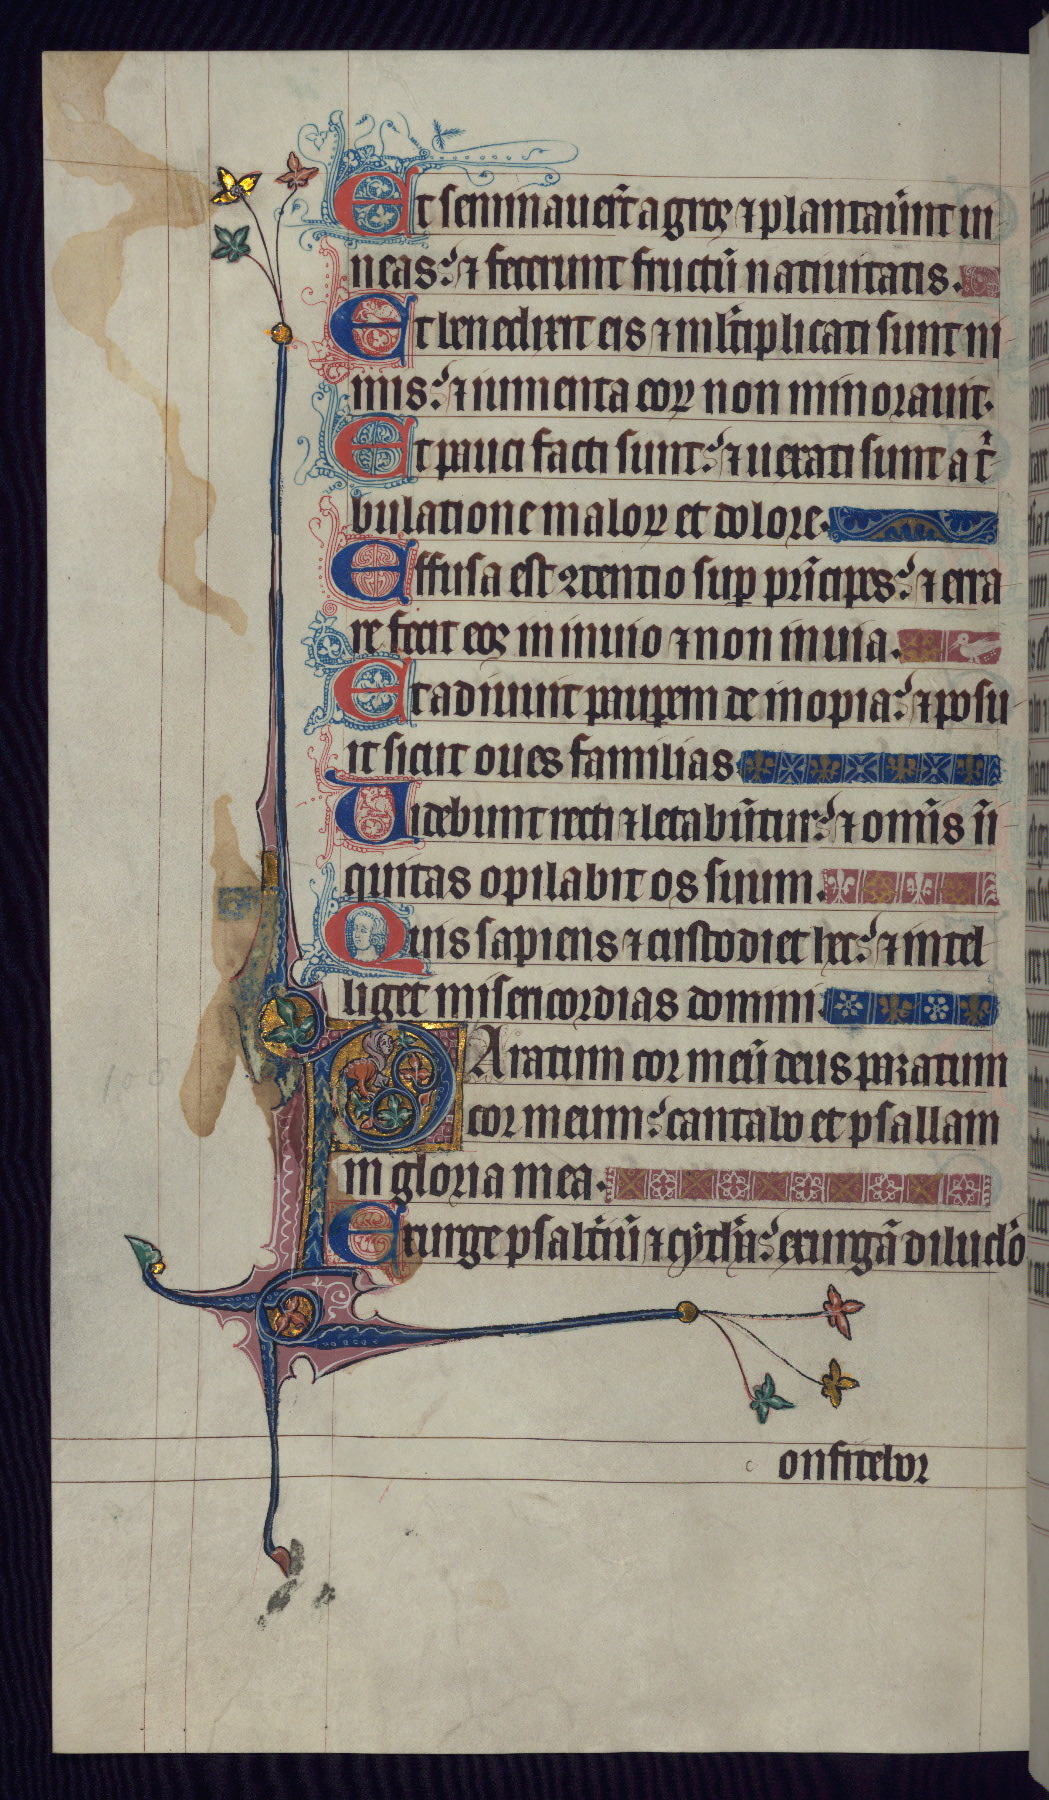 Et seminauer̄t agros ⁊ plantauer̄unt ui
neas: ⁊ fecerunt fructū natiuitatis.
Et benedixit eis ⁊ ml̄tiplicati sunt ni
mis: ⁊ iumenta eoꝝ non minorauit.
Et pauci facti sunt: ⁊ uexati sunt a tͥ
bulatione maloꝝ et dolore.
Effusa est ꝯtentio suꝑ pͥncipes: ⁊ erra
re fecit eos in inuio ⁊ non in uia.
Et adiuuit pauꝑem de inopia: ⁊ posu
it sicut oues familias
Uidebunt recti ⁊ letabūtur: ⁊ omīs īi
quitas opilabit os suum.
Quis sapiens ⁊ custodiet hec: ⁊ intel
liget misericordias domini.
Paratum cor meū deus paratum
cor meum: cantabo et psallam
in gloria mea.
Exurge psalt̄iū ⁊ cythͣa: exurgā diluclͦo
c onfitebor